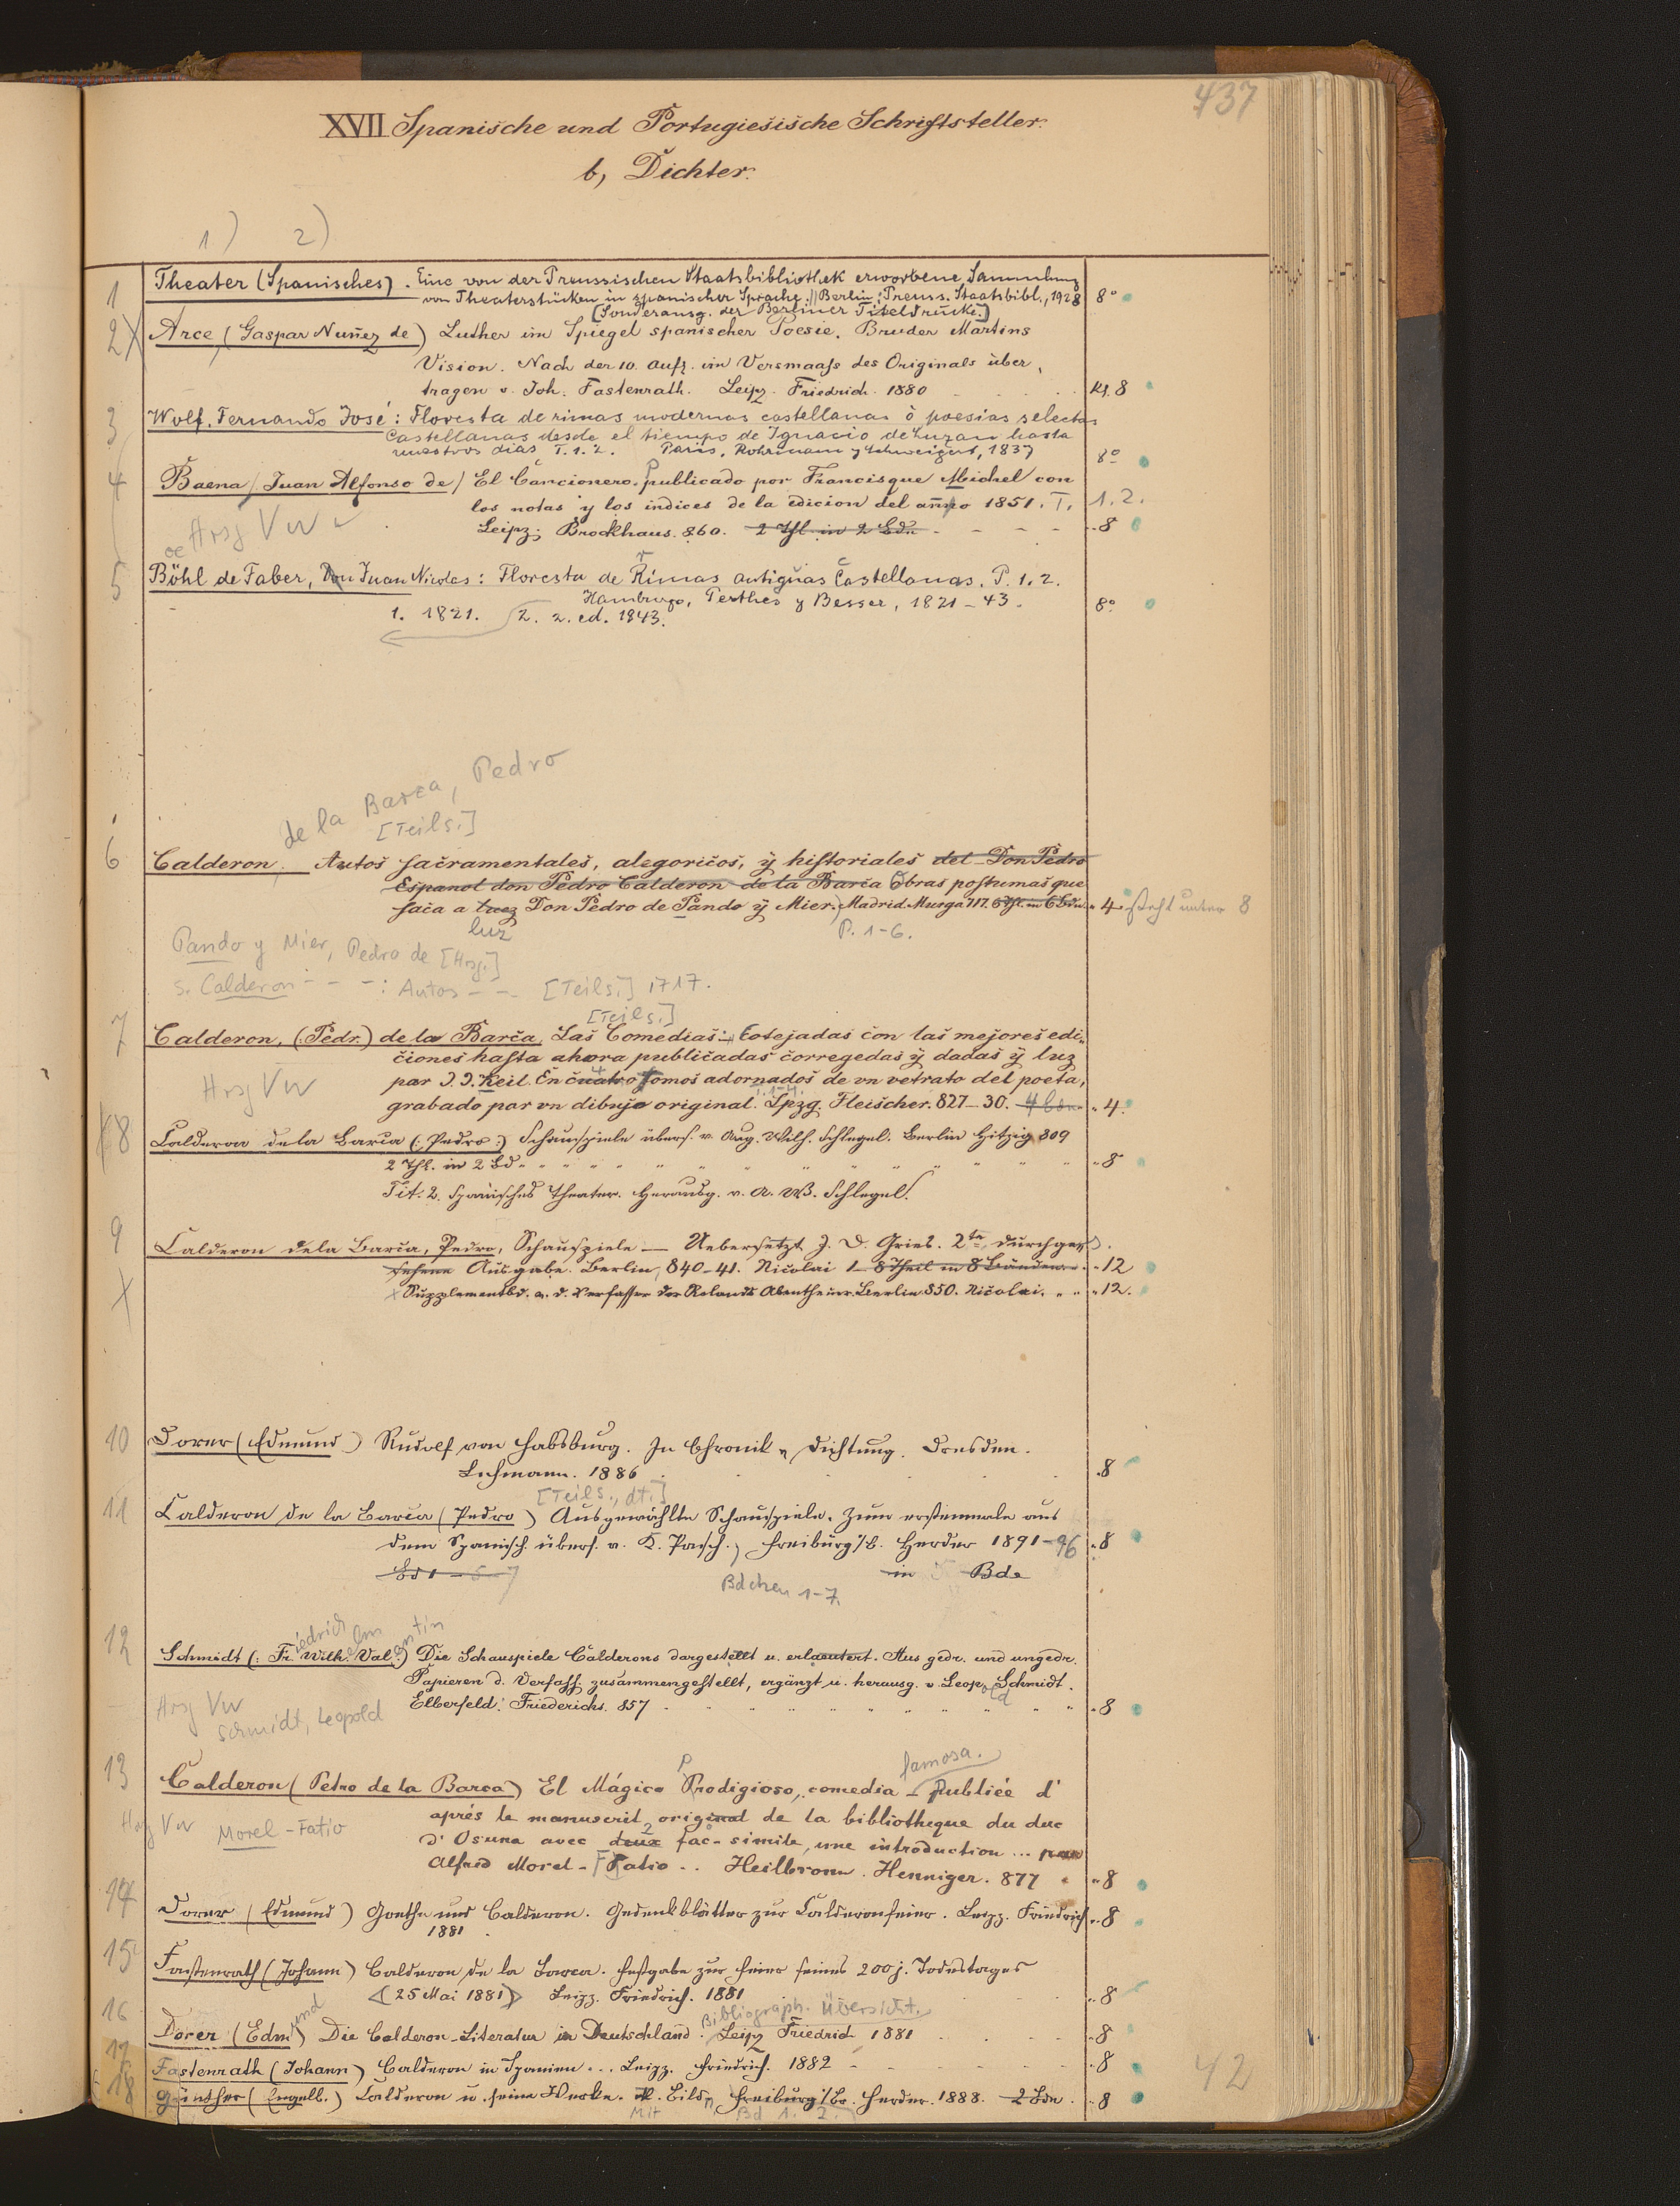 437
XVII Spanische und Portugiesische Schriftsteller.
b, Dichter.
1) 2)
1 Theater (Spanisches). Eine von der Preussischen Staatsbibliothek erworbene Sammlung
von Theaterstücken in spanischer Sprache. // Berlin: Preuss. Staatsbibl., 1928 8°
(Sonderausg. der Berliner Titeldrucke.)
2 X Arce (Gaspar Nuñez de) Luther im Spiegel spanischer Poesie. Bruder Martins
Vision. Nach der 10. Aufl. im Versmaaß des Originals über,
tragen v. Joh. Fastenrath. Leipz. Friedrich. 1880 Kl. 8
3 Wolf, Fernando José: Floresta de rimas modernas castellanas ò poesias selectas
Castellanas desde el tiempo de Ignacio de Luzan hasta
nuestros dias T. 1. 2. Paris, Rohrmann y Schweigerd, 1837 8°
4 Baena / Juan Alfonso de / El Cancionero. publicado por Francisque Michel con
los notas y los indices de la edicion del anno 1851. T. 1. 2.
Hrsg VW Leipz; Brockhaus. 860. 2 Thl. in 2 Bdn - - - - 8
oe
5 Böhl de Faber, Don Juan Nicolas: Floresta de Rimas antiguas Castellanas. P. 1. 2.
Hamburgo, Perthes y Besser, 1821-43. 8°
1. 1821. 2. 2. ed. 1843.
de la Barca, Pedro
[Teils.]
6 Calderon. Autos sacramentales, alegoricos, y historiales del Don Pedro
Espanol don Pedro Calderon de la Barca Obras postumas que
saca a luez Don Pedro de Pando y Mier.) Madrid. Murga 717. 6 Thl. in 6 Bdn. 4 steht unter 8
luz P. 1-6.
Pando y Mier, Pedro de [Hrsg.]
s. Calderon - - -: Autos - - [Teils.] 1717.
[Teils.]
7 Calderon, (Pedr.) de la Barca, Las Comedias: Cotejadas con las mejores edi,,
ciones hasta ahora publicadas corregedas y dadas y luz
Hrsg VW par J. J. Keil. En cuatro Tomos adornados de un retrato del poeta,
grabado par un dibujo original. Lpzg. Fleischer. 827-30. 4 4.
8 Calderon de la Barca (: Pedro :) Schauspiele übers. v. Aug. Wilh. Schlegel. Berlin Hitzig 809
2 Thl. in 2 Bd 8
Tit: 2. Spanisches Theater. Herausg. v. A. W. Schlegel.
9 Calderon de la Barca, Pedro, Schauspiele — Uebersetzt J. D. Gries. 2te durchges.
X sehene Ausgabe. Berlin, 840-41. Nicolai 1 - 8 Theil in 8 Bänden 12
X Supplementbd. v. d. Verfasser der Rolands Abentheuer. Berlin 850. Nicolai. 12.
10 Dorer (Edmund) Rudolf von Habsburg. In Chronik u Dichtung. Dresden.
Lehmann. 1886 8
[Teils., dt.]
11 Calderon de la Barca (Pedro) Ausgewählte Schauspiele. Zum erstenmale aus
dem Spanisch. übers. v. K. Pasch.) Freiburg i/B. Herder 1891-96 8
Bd 1 - 7 Bdchen 1-7. in Bde
12 Schmidt (: Friedrich Wilhelm Valentin) Die Schauspiele Calderons dargestellt u. erlaeutert. Aus gedr. und ungedr.
Papieren d. Verfass. zusammengestellt, ergänzt u. herausg. v. Leopold Schmidt.
Elberfeld: Friederichs. 857 8
Hrsg VW Schmidt, Leopold
famosa.
13 Calderon (Petro de la Barca) El Mágico Prodigioso, comedia - publiée d'
aprés le manuscrit original de la bibliotheque du duc
Hrsg VW Morel-Fatio d'Osuna avec deux 2 fac-simile, une introduction ... par
Alfred Morel-Fatio .. Heilbronn. Henniger. 877 8
14 Dorer (Edmund) Goethe und Calderon. Gedenkblätter zur Calderonfeier. Leipz. Friedrich 8
1881
15 Fastenrath (Johann) Calderon de la Barca. Festgabe zur Feier seines 200j. Todestages
(25 Mai 1881) Leipz. Friedrich. 1881 8
16 Dorer (Edmund) Die Calderon-Literatur in Deutschland. Bibliograph. Übersicht. Leipz Friedrich 1881 8
17 Fastenrath (Johann) Calderon in Spanien ... Leipz. Friedrich. 1882 8
18 Günther (Engelb.) Calderon u. seine Werke. M. Bildn. Freiburg i/Br. Herder. 1888. 2 Bde. 8
Mit Bd 1. 2.
42